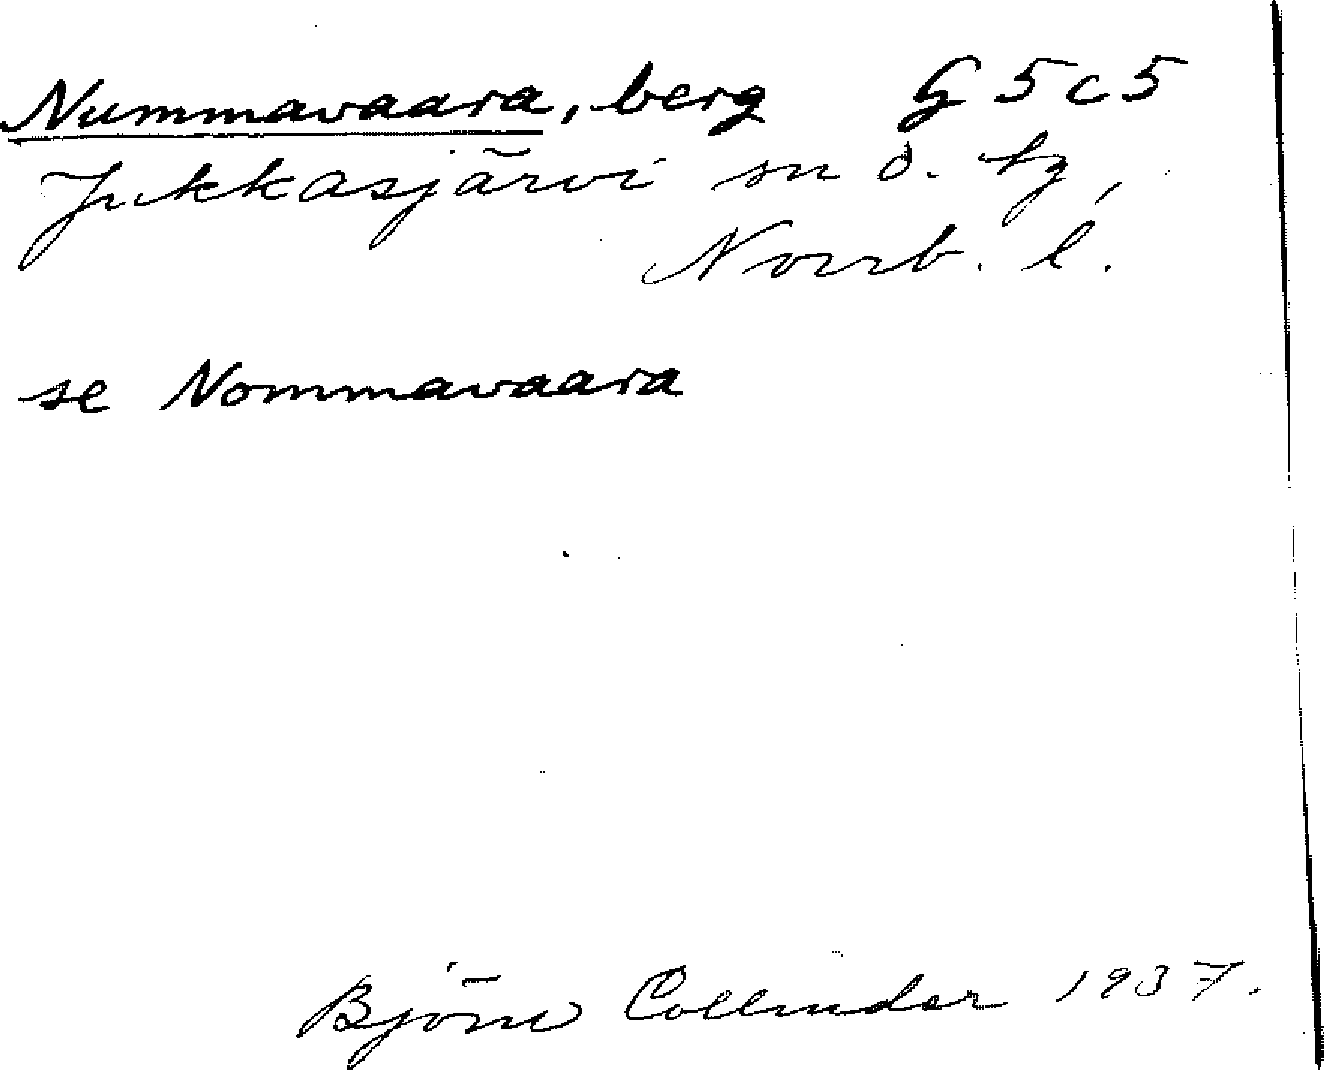 Nummavaara, berg G5c5
Jukkasjärvi sn o. tg,
Norrb. l.
se Nommavaara
Björn Collinder 1937.